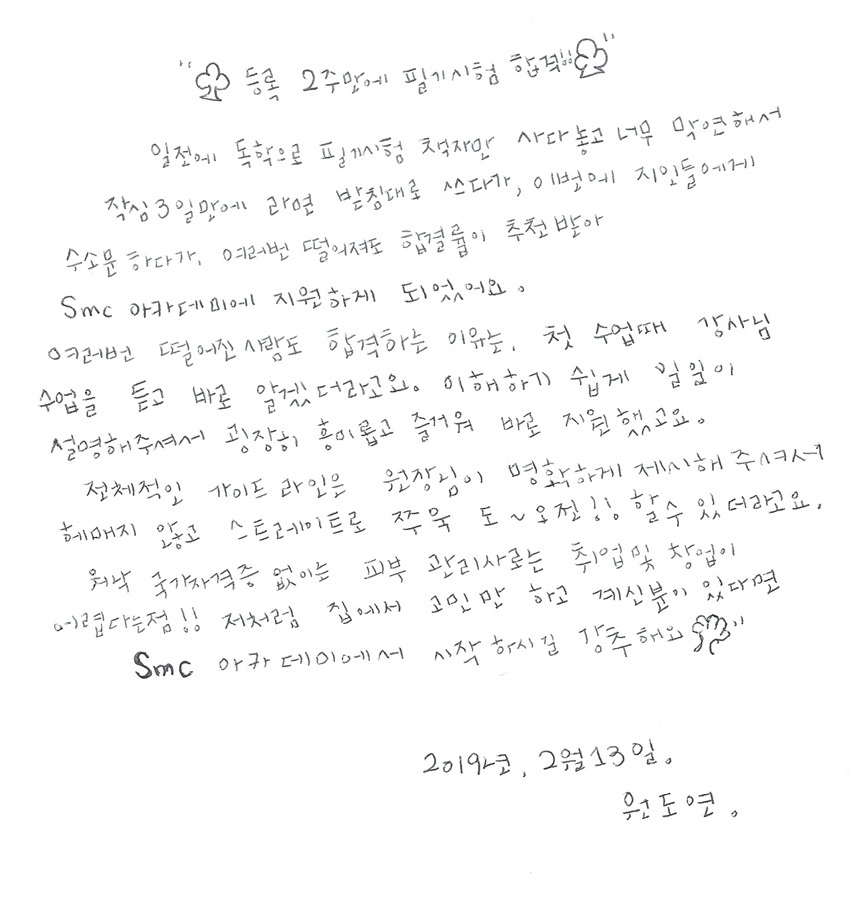 "등록 2주만에 필기시험 합격!!"
일전에 독학으로 필기시험 책자만 사다놓고 너무 막연해서
작심3일만에 라면 받침대로 쓰다가, 이번에 지인들에게
수소문 하다가, 여러번 떨어져도 합결률이 추천받아
Smc 아카데미에 지원하게 되었어요.
여러번 떨어진사람도 합격하는 이유는, 첫 수업때 강사님
수업을 듣고 바로 알겠더라고요. 이해하기 쉽게 일일이
설명해주셔서 굉장히 흥미롭고 즐거워 바로 지원했고요.
전체적인 가이드 라인은 원장님이 명확하게 제시해 주셔서
헤매지 않고 스트레이트로 쭈욱 도~오전!! 할수 있더라고요.
워낙 국가자격증 없이는 피부 관리사로는 취업및 창업이
어렵다는점!! 저처럼 집에서 고민만 하고 계신분이 있다면
Smc 아카데미에서 시작 하시길 강추해요"
2019년, 2월13일.
원도연.